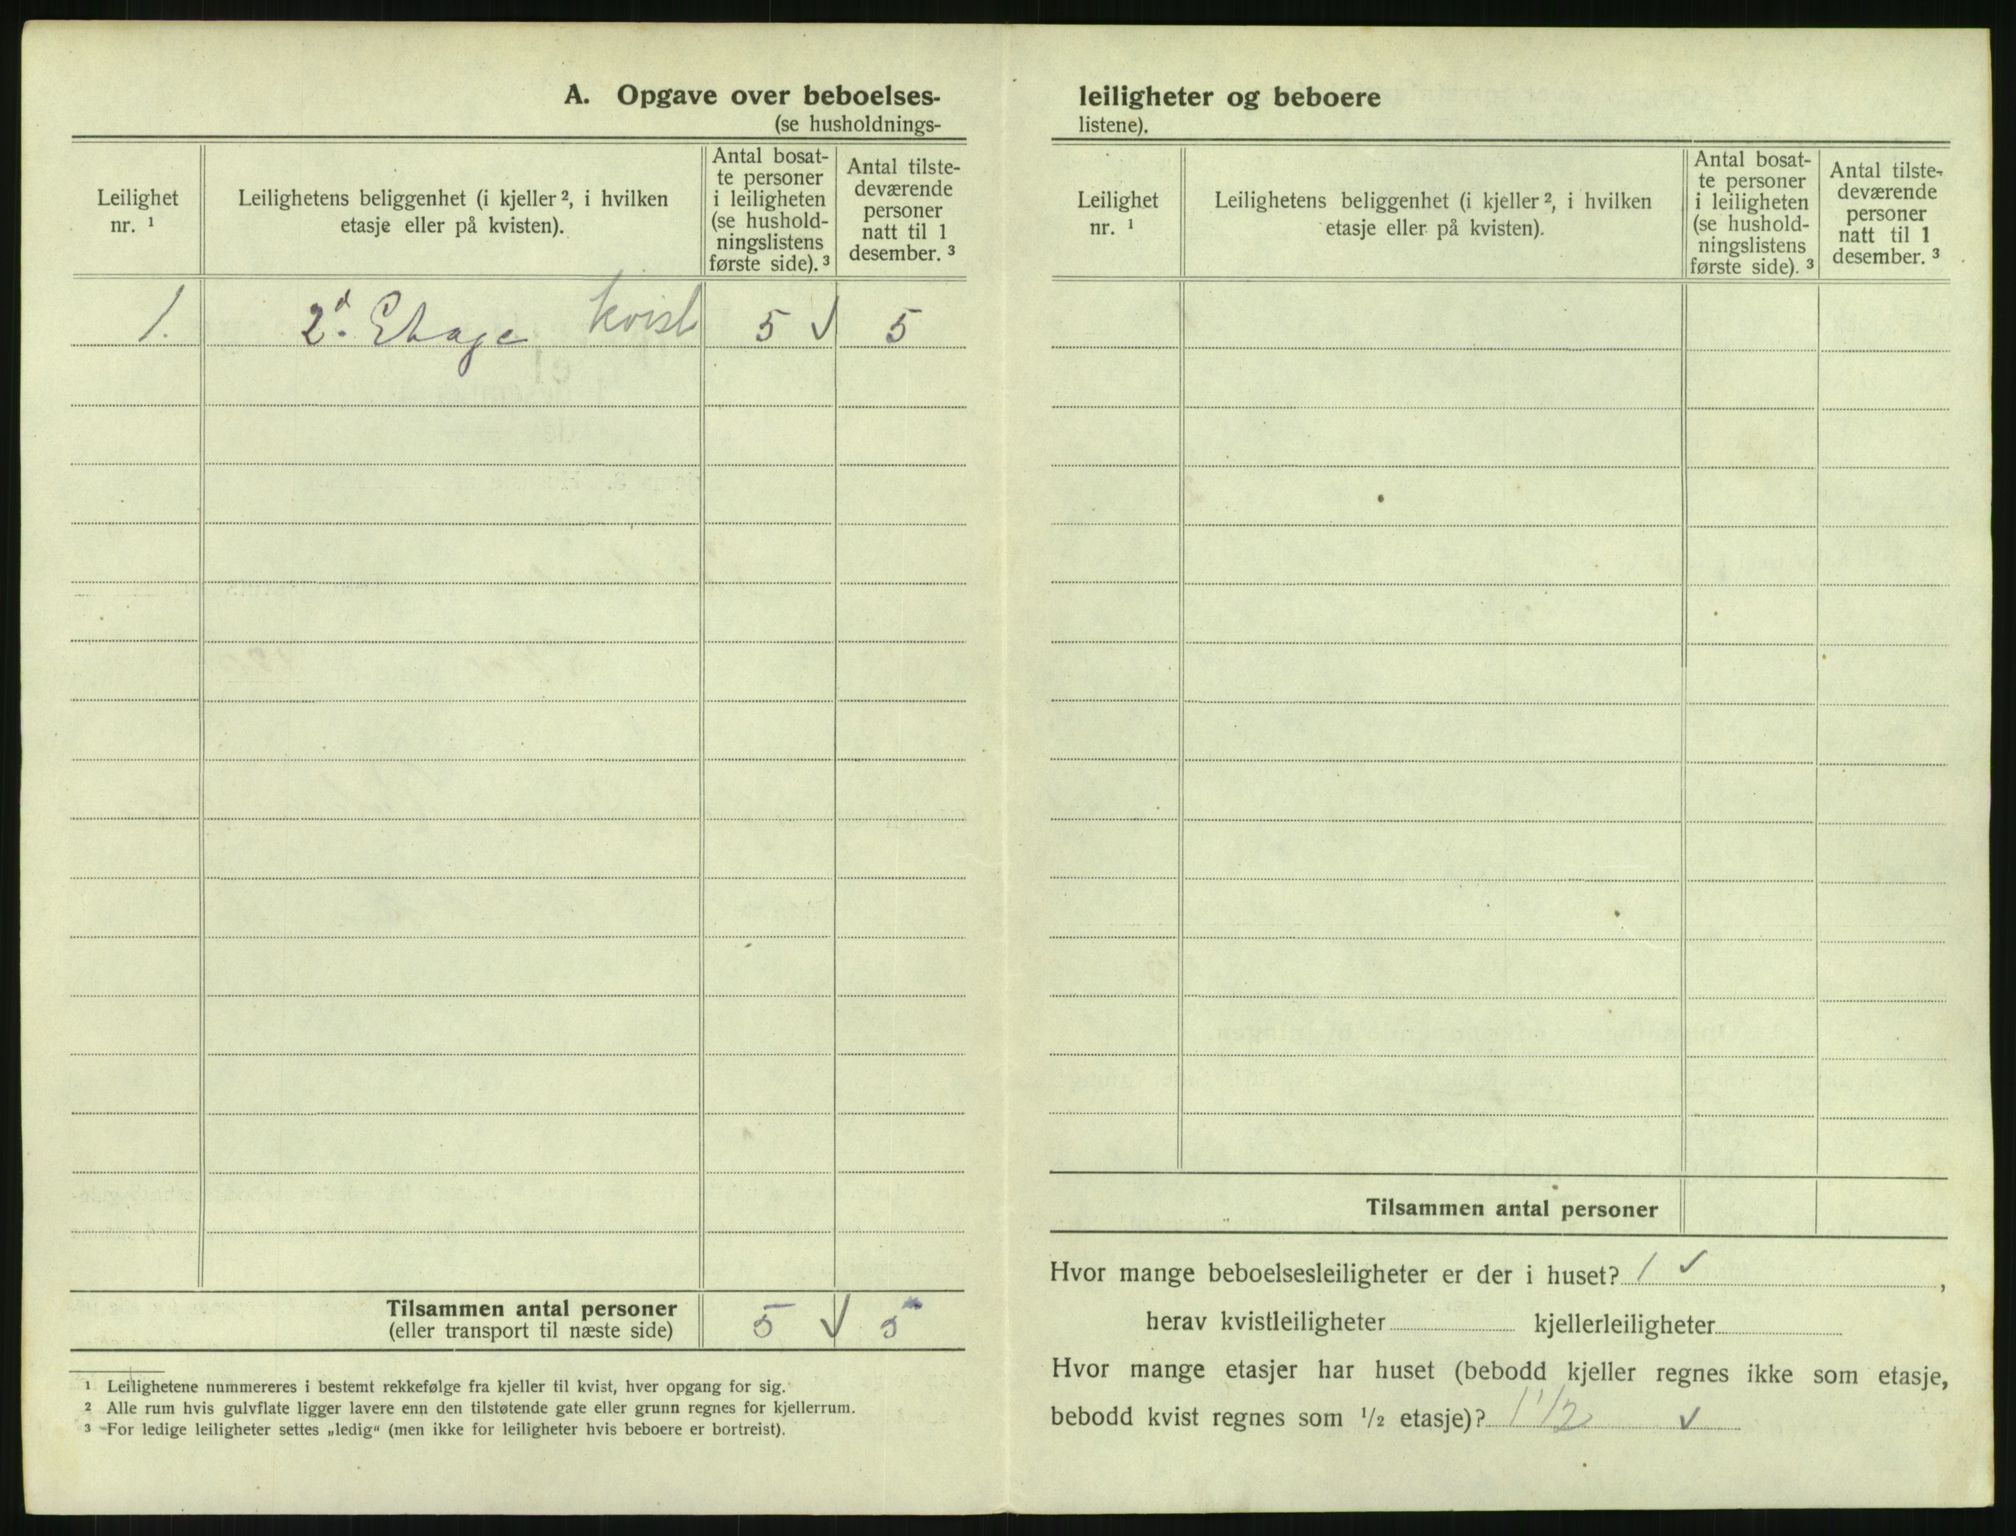 A. Opgave over beboelses-
(se husholdnings-
Leilighet
nr. ¹
Leilighetens beliggenhet (i kjeller ², i hvilken
etasje eller på kvisten).
Antal bosat-
te personer
i leiligheten
(se hushold-
ningslistens
første side). ³
Antal tilste-
deværende
personer
natt til 1
desember. ³
1. 2d. Etage kvist 5 √ 5
Tilsammen antal personer
(eller transport til næste side)
5 √ 5
¹ Leilighetene nummereres i bestemt rekkefølge fra kjeller til kvist, hver opgang for sig.
² Alle rum hvis gulvflate ligger lavere enn den tilstøtende gate eller grunn regnes for kjellerrum.
³ For ledige leiligheter settes „ledig“ (men ikke for leiligheter hvis beboere er bortreist).
leiligheter og beboere
listene).
Leilighet
nr. ¹
Leilighetens beliggenhet (i kjeller ², i hvilken
etasje eller på kvisten).
Antal bosat-
te personer
i leiligheten
(se hushold-
ningslistens
første side). ³
Antal tilste-
deværende
personer
natt til 1
desember. ³
Tilsammen antal personer
Hvor mange beboelsesleiligheter er der i huset? 1 √ ,
herav kvistleiligheter kjellerleiligheter
Hvor mange etasjer har huset (bebodd kjeller regnes ikke som etasje,
bebodd kvist regnes som ½ etasje)? 1 1/2 √